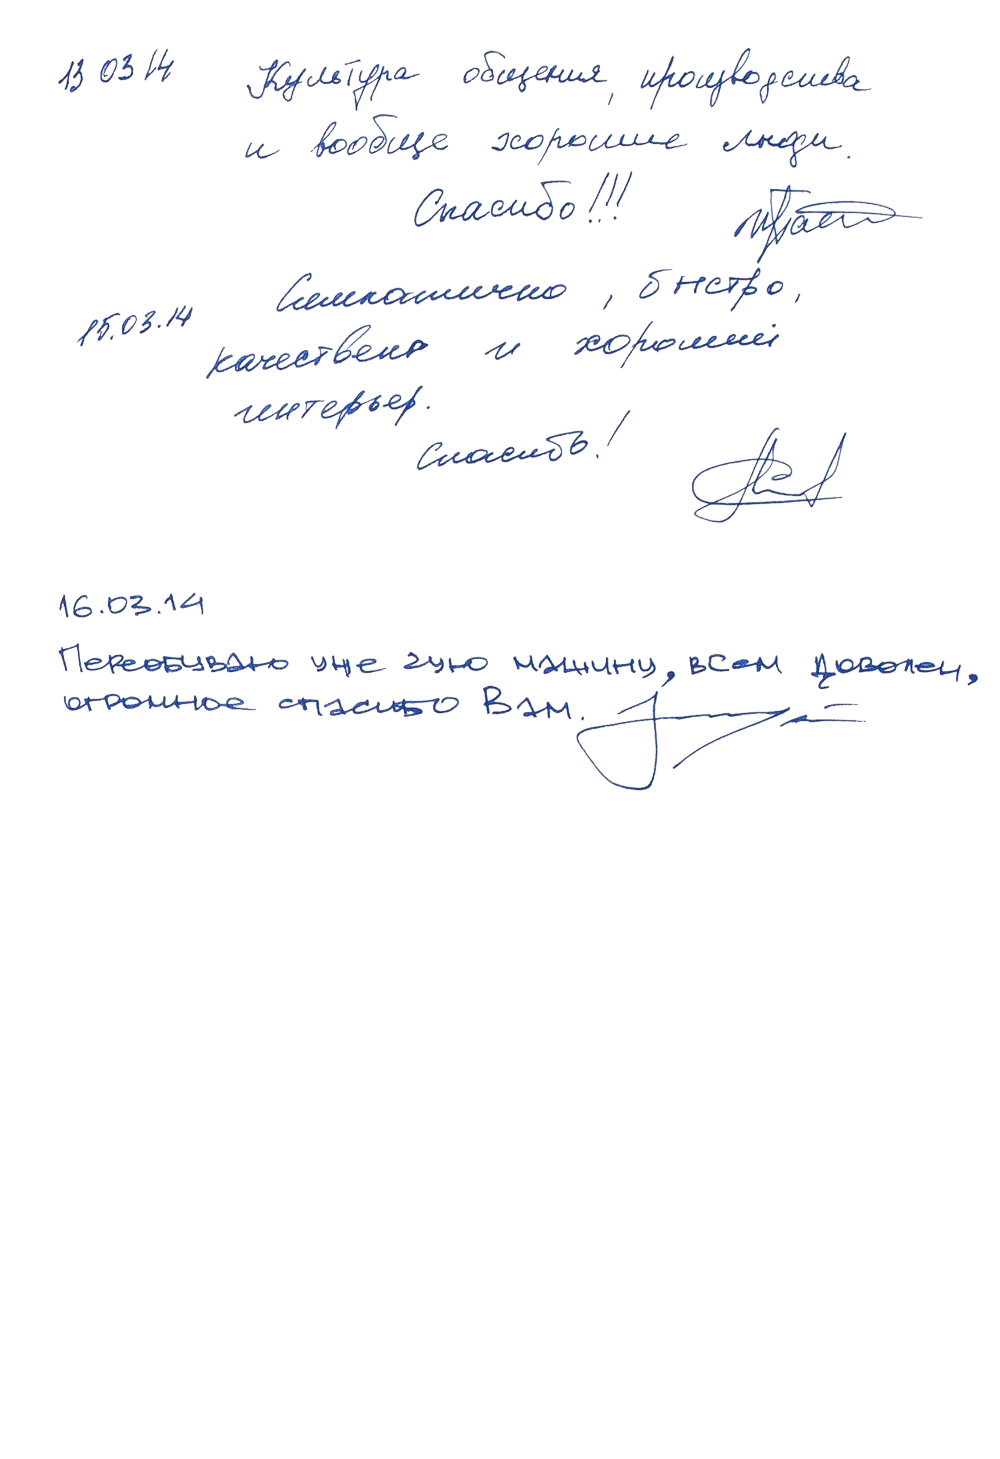 13 03 14 Культура общения, производства
и вообще хорошие люди.
Спасибо!!!
Симпатично, быстро,
15.03.14
качествено и хороший
интерьер.
Спасибо!
16.03.14
Переобуваю уже 2ую машину, всем доволен,
огромное спасибо Вам.